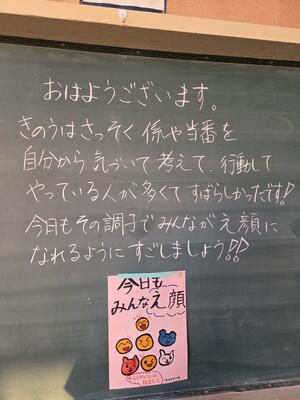 おはようございます。
きのうはさっそく係や当番を
自分から気づいて考えて、行動して
やっている人が多くてすばらしかったです!
今日もその調子でみんながえ顔に
なれるようにすごしましょう!!
今日も
みんなえ顔